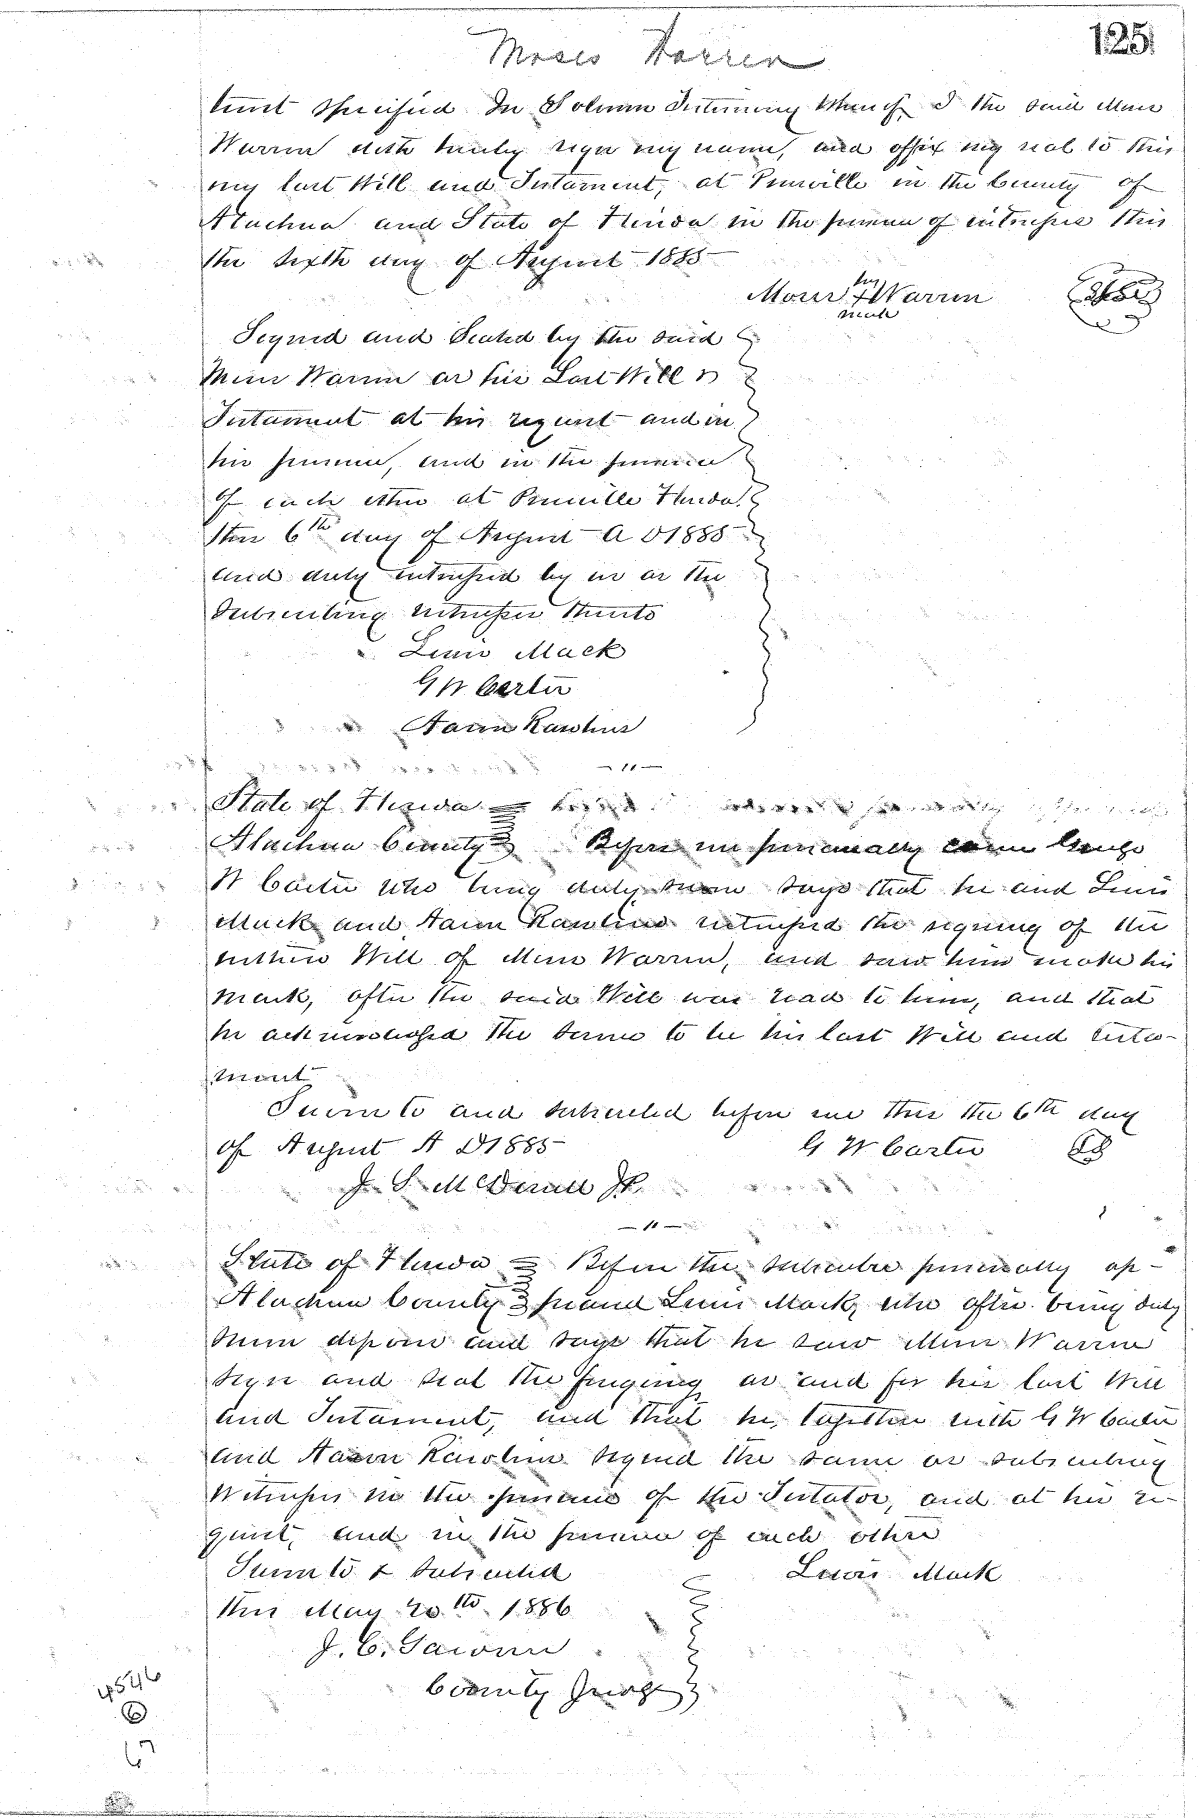 125
Moses Warren
trust specified In Solemn Testimony Whereof, I the said Moses
Warren doth hereby sign my name, and affix my seal to this
my last Will and Testament, at Pineville in the County of
Alachua and State of Florida in the presence of witnesses this
the sixth day of August 1885
his
Moses + Warren
mark
Signed and Sealed by the said
Moses Warren as his Last Will &
Testament at his request and in
his presence, and in the presence
of each other at Pineville Florida.
this 6th day of August A D 1885
and duly witnessed by us as the
Subscribing witnesses thereto
Lewis Mack
G W Carter
Aaron Rawlins
— " —
State of Florida
Alachua County Before me personally came George
W Carter who being duly sworn says that he and Lewis
Mack and Aaron Rawlins witnessed the signing of the
within Will of Moses Warren, and saw him make his
mark, after the said Will was read to him, and that
he acknowledged the same to be his last Will and testa-
ment
Sworn to and subscribed before me this the 6th day
of August A D 1885 G W Carter
J. S. McDonall J.P.
— " —
State of Florida Before the subscriber personally ap-
Alachua County peared Lewis Mack, who after being duly
sworn depose and says that he saw Moses Warren
sign and seal the foregoing as and for his last Will
and Testament, and that he, together with G W Carter
and Aaron Rawlins signed the same as subscribing
Witnesses in the presence of the Testator, and at his re-
quest, and in the presence of each other
Sworn to & subscribed Lewis Mack
this May 20th 1886
J. C. Gardner
County Judge
4546
6
67